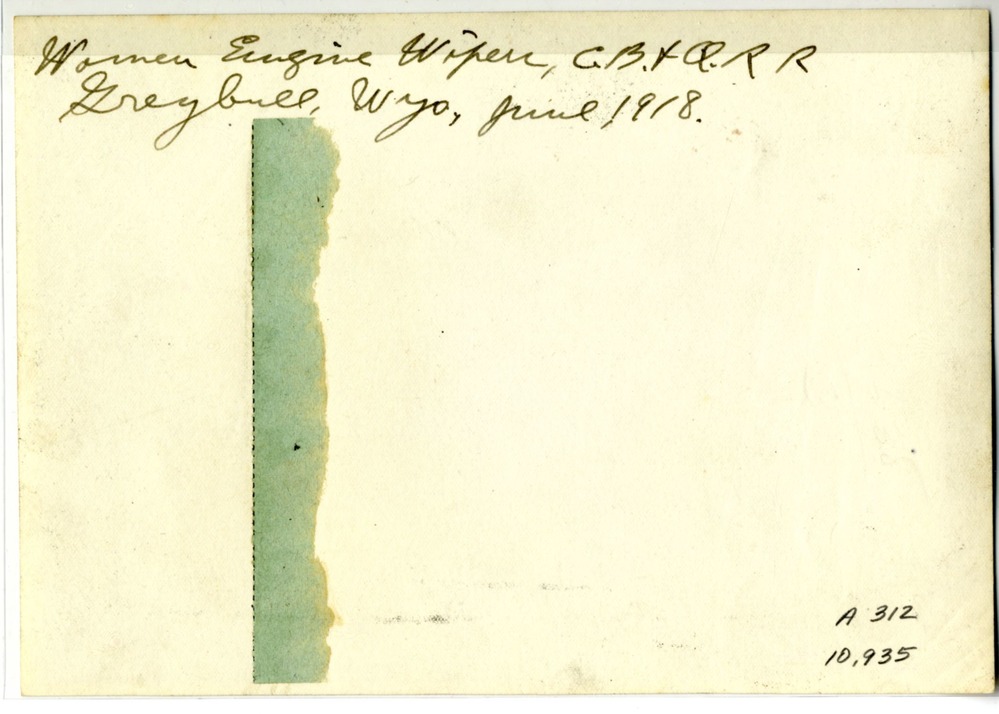 Women Engine Wipers, C.B.& Q. R R
Greybull, Wyo, June, 1918.
A 312
10,935